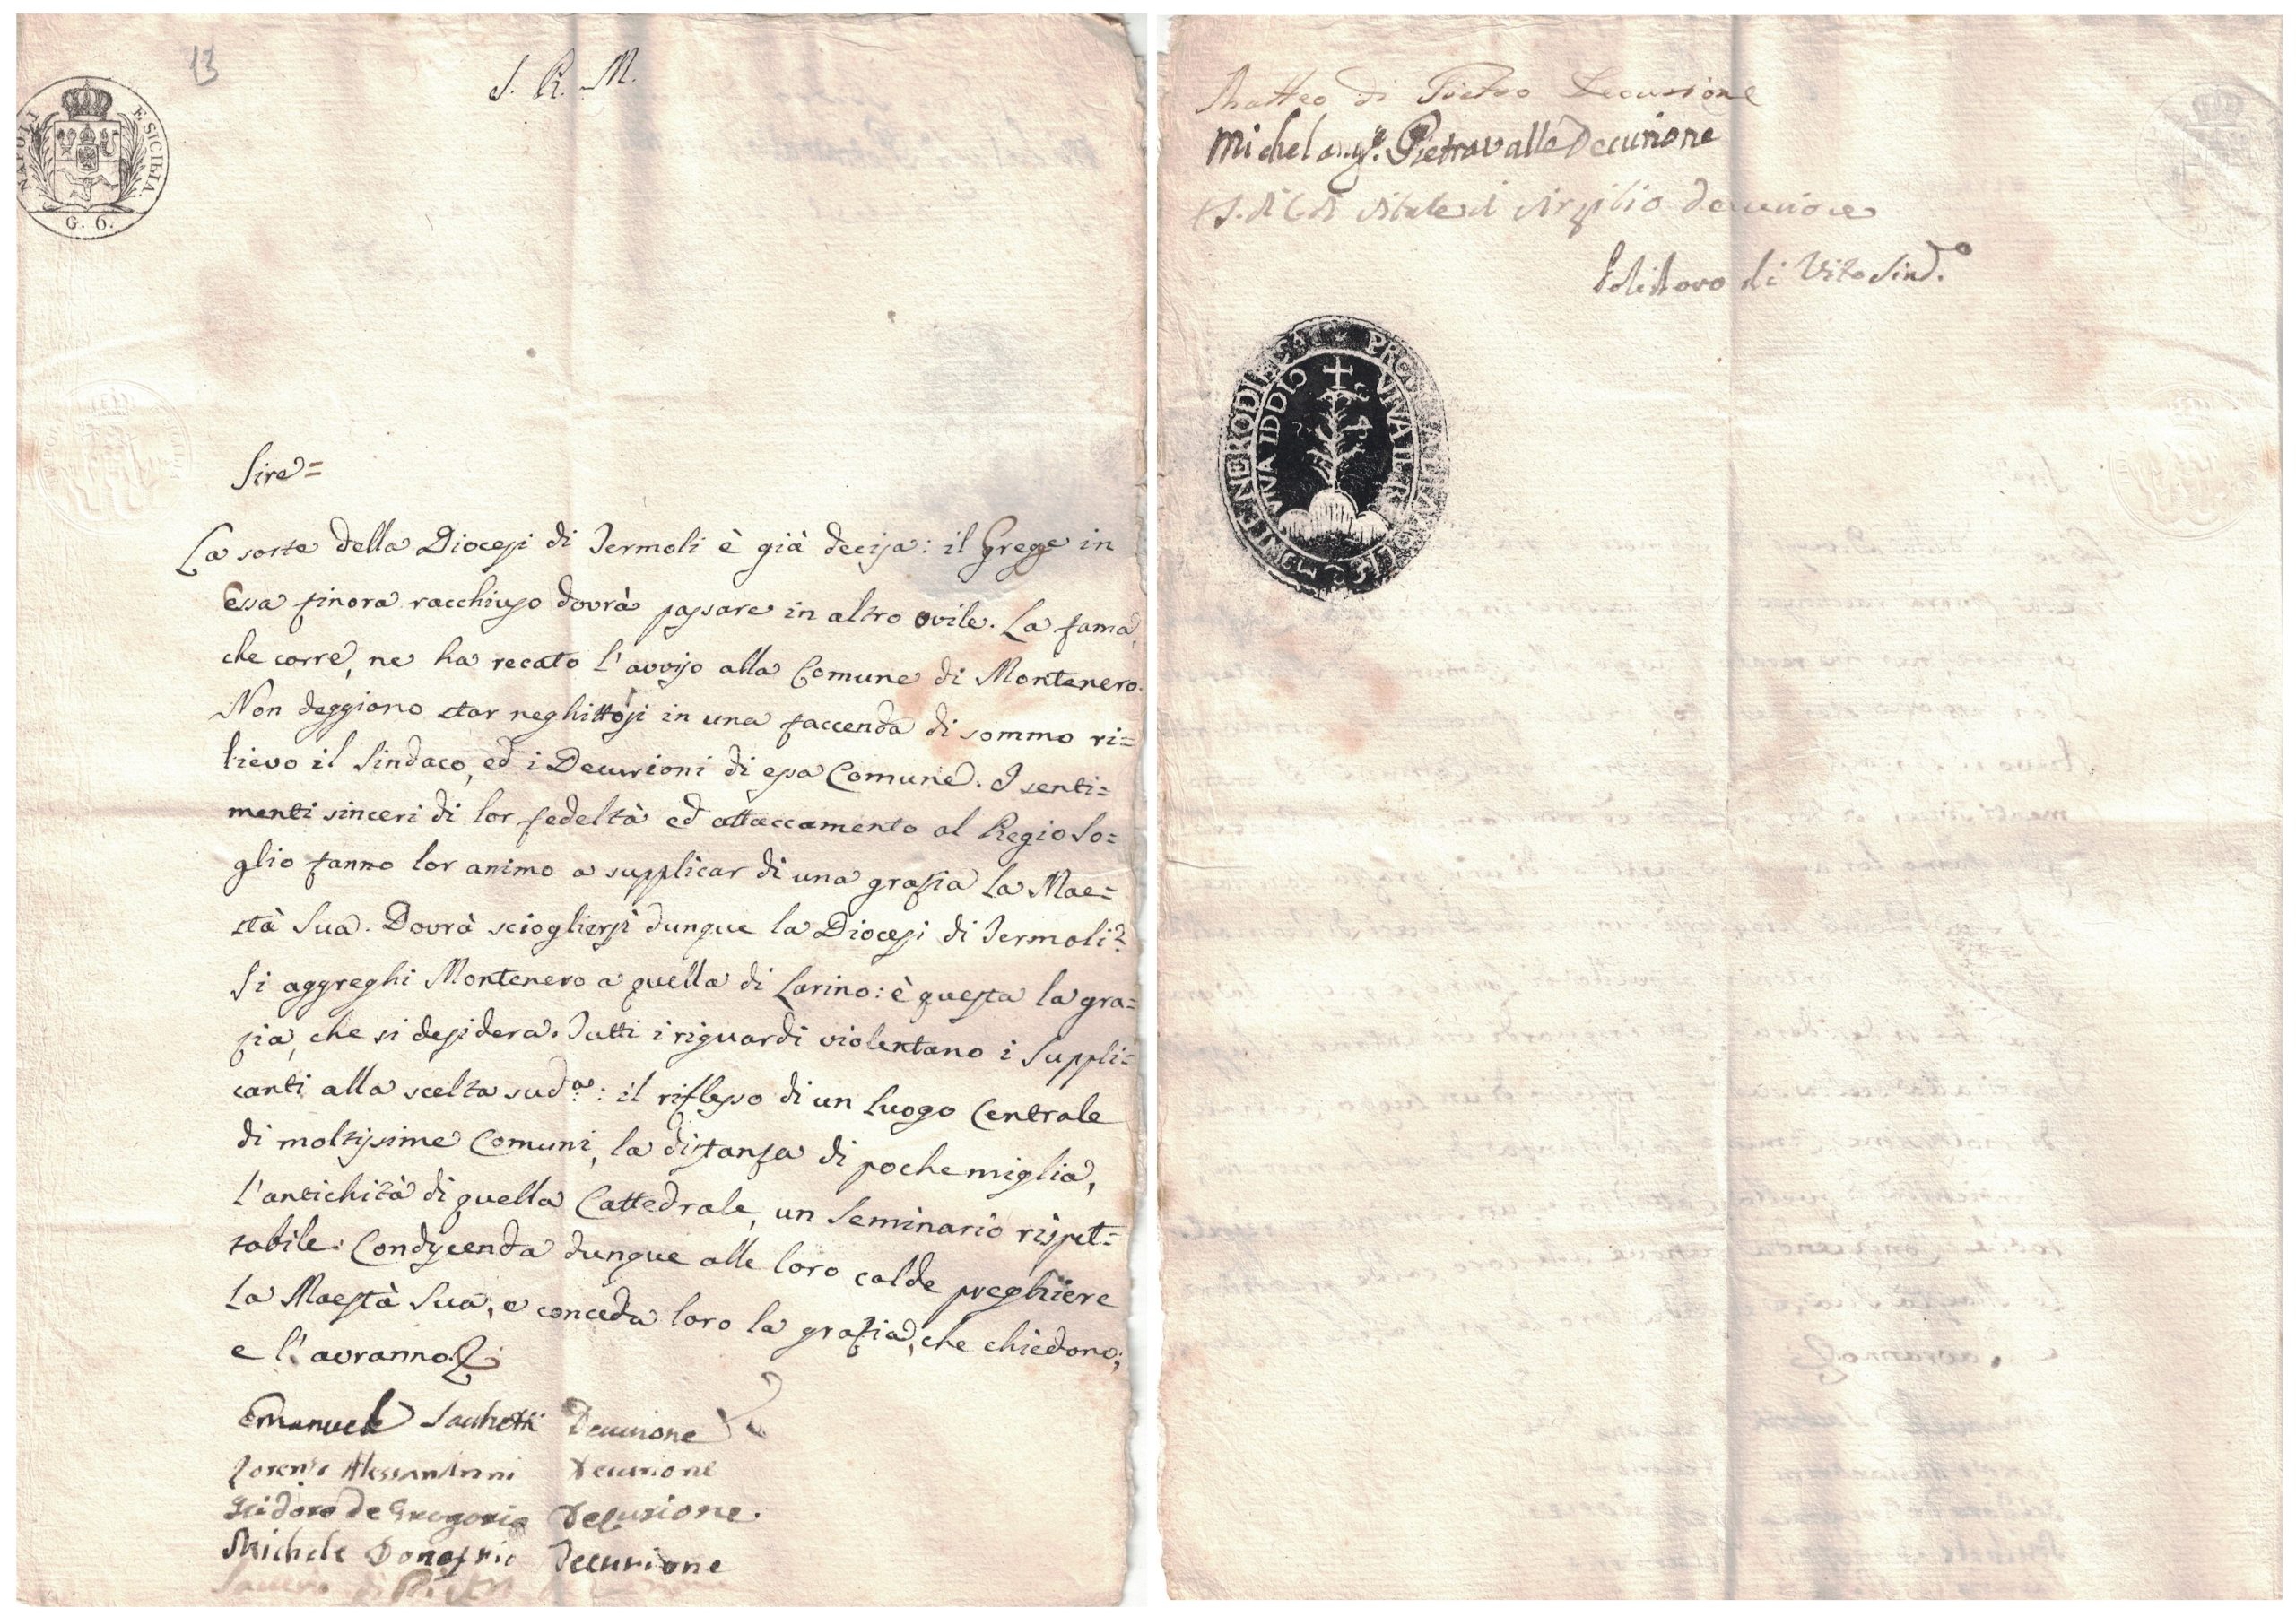 13
S. R. M.
NAPOLI E SICILIA
G. 6.
Sire=
La sorte della Diocesi di Termoli è già decisa: il Grege in
essa finora racchiuso dovrà passare in altro ovile. La fama,
che corre, ne ha recato l'avviso alla Comune di Montenero.
Non deggiono star neghittosi in una faccenda di sommo ri=
lievo il Sindaco, ed i Decurioni di essa Comune. I senti=
menti sinceri di lor fedeltà ed attaccamento al Regio So=
glio fanno lor animo a supplicar di una grazia la Mae=
stà Sua. Dovrà sciogliersi dunque la Diocesi di Termoli?
Si aggreghi Montenero a quella di Larino: è questa la gra=
zia, che si desidera. Tutti i riguardi violentano i Suppli=
canti alla scelta sud.a: il riflesso di un luogo Centrale
di moltissime Comuni, la distanza di poche miglia,
l'antichità di quella Cattedrale, un Seminario rispet=
tabile. Condiscenda dunque alle loro calde preghiere
La Maestà Sua, e conceda loro la grazia, che chiedono;
e l'avranno.
Emanuele Sacchetti Decurione
Lorenzo Alessandrini Decurione
Isidoro de Gregorio Decurione.
Michele Donofrio Decurione
Saverio di
Matteo di Pietro Decurione
Michelang.o Pietravalle Decurione
Vitale di Virgilio decurione
di Vito Sind.o
MONTENERO DI BIS PROV
VIVA IDDIO VIVA IL RE